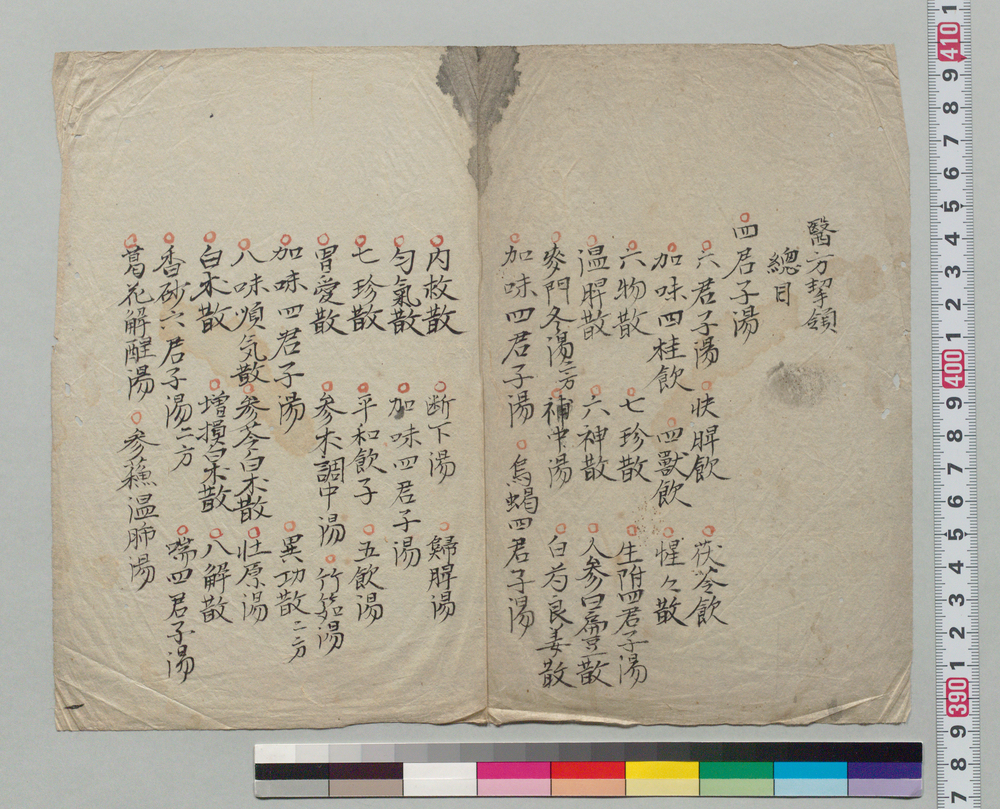 醫方挈領
總目
四君子湯
六君子湯 快脾飲 茯苓飲
加味四桂飲 四獸飲 惺々散
六物散 七珍散 生附四君子湯
温脾散 六神散 人参白扁豆散
麥門冬湯二方 補中湯 白芍良姜散
加味四君子湯 烏蝎四君子湯
内救散 断下湯 歸脾湯
匀氣散 加味四君子湯
七珍散 平和飲子 五飲湯
胃愛散 参朮調中湯 竹筎湯
加味四君子湯 異功散二方
八味順気散 参苓白朮散 壮原湯
白朮散 増損白朮散 八解散
香砂六君子湯二方 喘四君子湯
葛花解酲湯 参蘓温肺湯
410
9
8
7
6
5
4
3
2
1
400
9
8
7
6
5
4
3
2
1
390
9
8
7